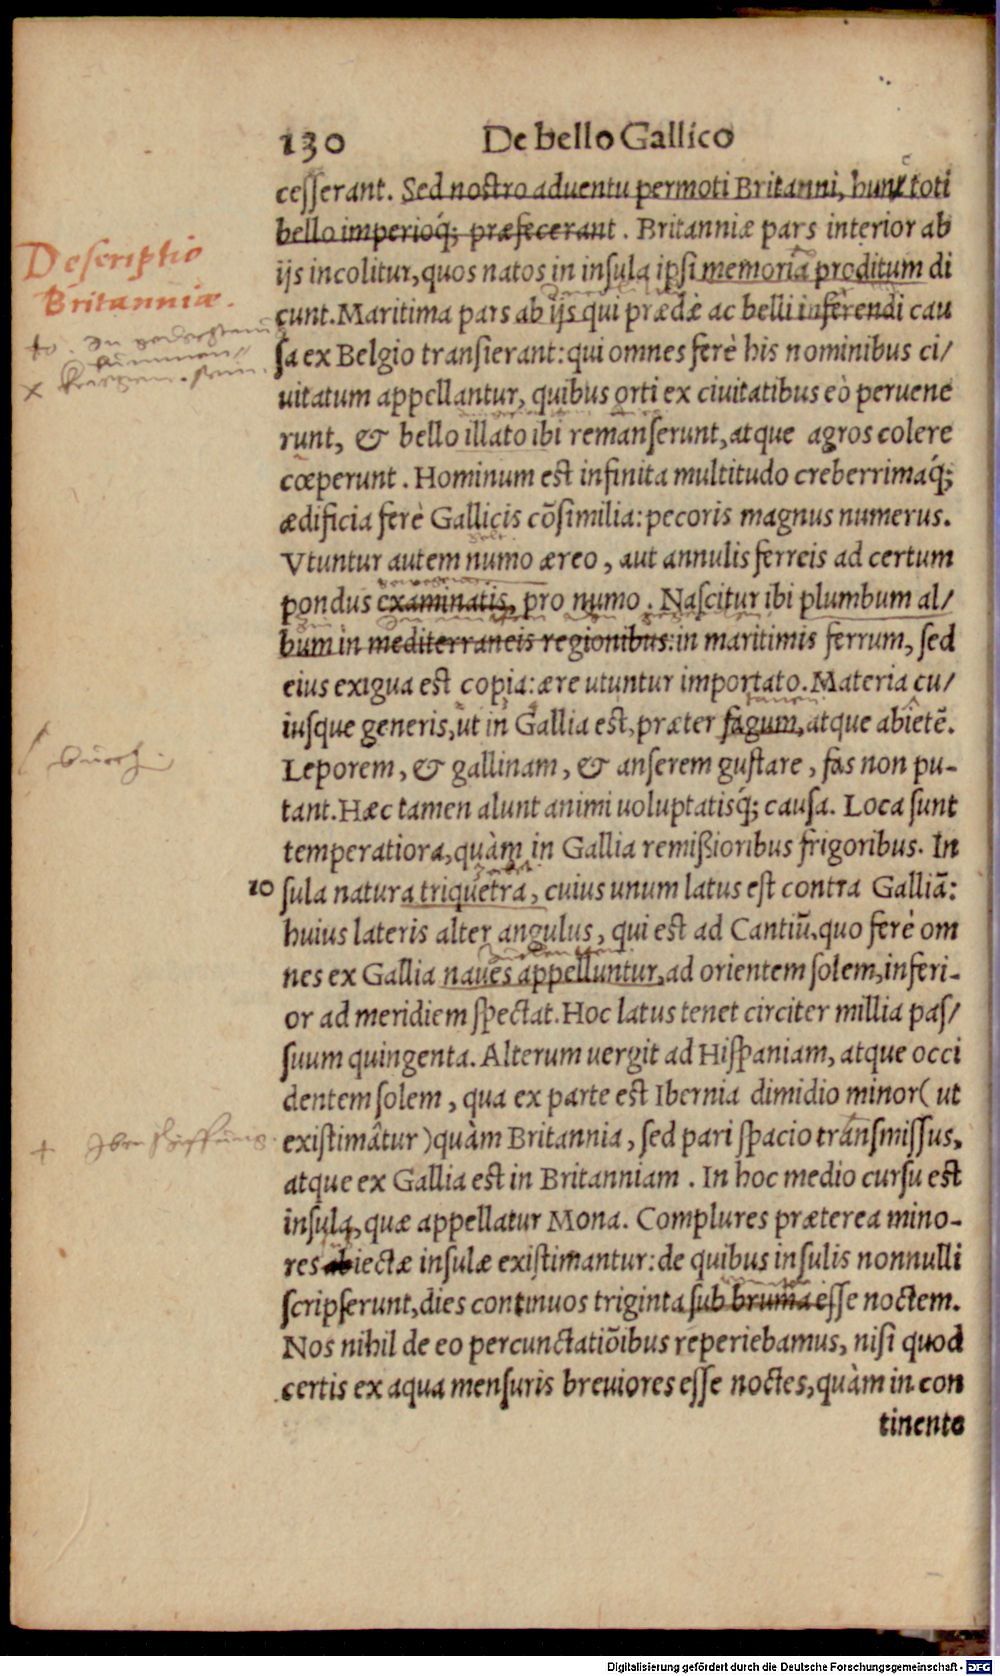 130 De bello Gallico
cesserant. Sed nostro aduentu permoti Britanni, hunc toti
bello imperioq́; præfecerant. Britanniæ pars interior ab
ijs incolitur, quos natos in insula ipsi memoria proditum di
cunt. Maritima pars ab ijs qui prædę ac belli inferendi cau
sa ex Belgio transierant: qui omnes ferè his nominibus ci/
uitatum appellantur, quibus orti ex ciuitatibus eò peruene
runt, & bello illato ibi remanserunt, atque agros colere
cœperunt. Hominum est infinita multitudo creberrimaq́;
ædificia ferè Gallicis cõsimilia: pecoris magnus numerus.
Vtuntur autem numo æreo, aut annulis ferreis ad certum
pondus examinatis, pro numo. Nascitur ibi plumbum al/
bum in mediterraneis regionibus: in maritimis ferrum, sed
eius exigua est copia: ære utuntur importato. Materia cu/
iusque generis, ut in Gallia est, præter fagum, atque abietẽ.
Leporem, & gallinam, & anserem gustare, fas non pu-
tant. Hæc tamen alunt animi uoluptatisq́; causa. Loca sunt
temperatiora, quàm in Gallia remißioribus frigoribus. In
10 sula natura triquetra, cuius unum latus est contra Galliã:
huius lateris alter angulus, qui est ad Cantiũ, quo ferè om
nes ex Gallia naues appelluntur, ad orientem solem, inferi-
or ad meridiem spectat. Hoc latus tenet circiter millia pas/
suum quingenta. Alterum uergit ad Hispaniam, atque occi
dentem solem, qua ex parte est Ibernia dimidio minor (ut
existimãtur) quàm Britannia, sed pari spacio transmissus,
atque ex Gallia est in Britanniam. In hoc medio cursu est
insula, quæ appellatur Mona. Complures præterea mino-
res abiectæ insulæ existimantur: de quibus insulis nonnulli
scripserunt, dies continuos triginta sub bruma esse noctem.
Nos nihil de eo percunctatiõibus reperiebamus, nisi quod
certis ex aqua mensuris breuiores esse noctes, quàm in con
tinente
Descriptio
Britanniæ.
Digitalisierung gefördert durch die Deutsche Forschungsgemeinschaft - DFG